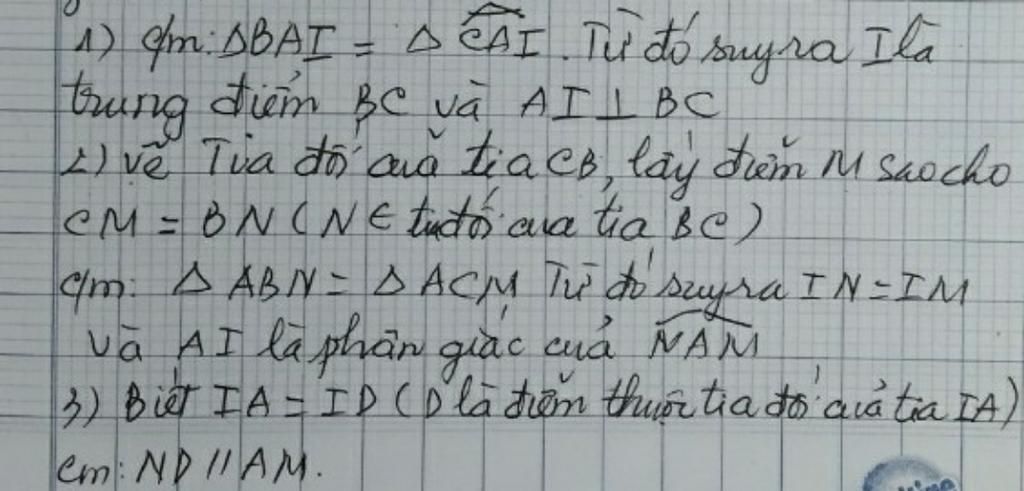 1) c/m: ΔBAI = Δ CAI. Từ đó suy ra I là
trung điểm BC và AI ⊥ BC
2) vẽ Tia đối của tia CB, lấy điểm M sao cho
CM = BN (N ∈ tia đối của tia BC)
c/m: Δ ABN = Δ ACM Từ đó suy ra IN = IM
và AI là phân giác của NAM
3) Biết IA = ID (D là điểm thuộc tia đối của tia IA)
cm: ND // AM.